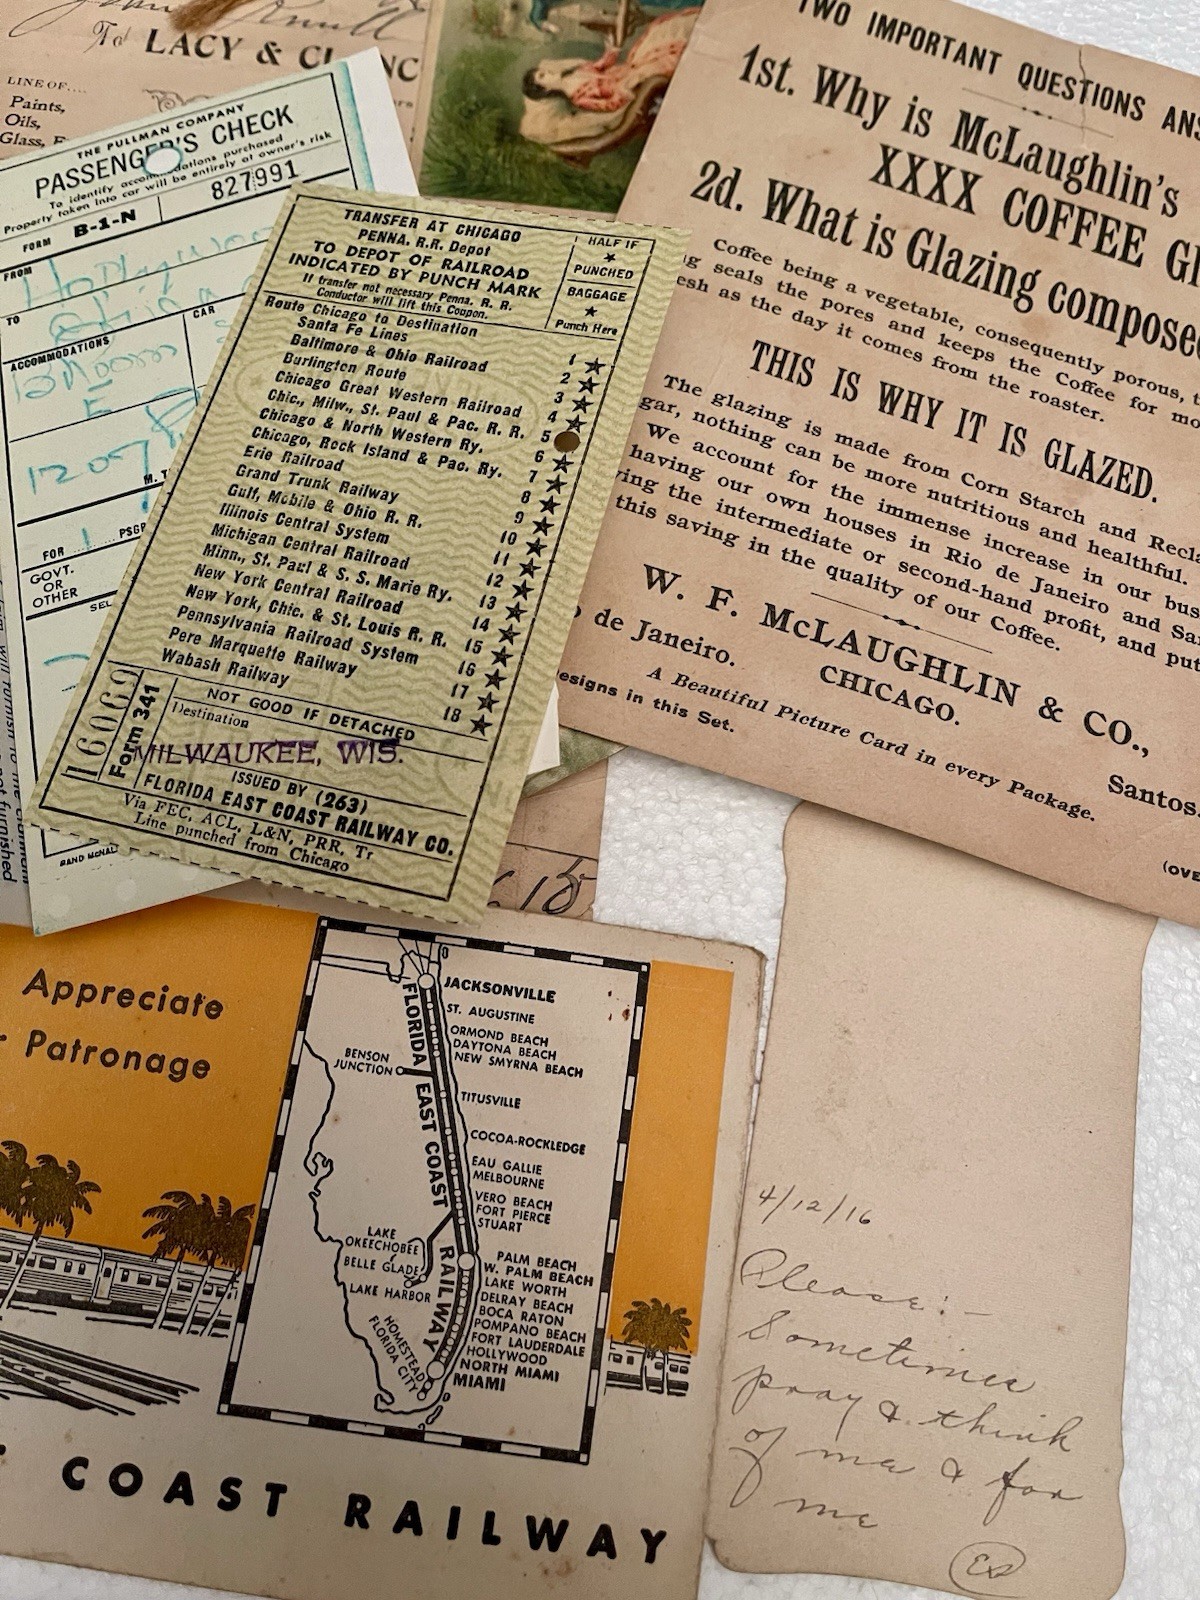 To LACY & CL
LINE OF....
Paints,
Oils,
Glass,
THE PULLMAN COMPANY
PASSENGER'S CHECK
To identify accommodations purchased
Property taken into car will be entirely at owner's risk
FORM B-1-N
827991
FROM
TO
CAR
ACCOMMODATIONS
E
1207
M.T
FOR 1 PSGR
GOVT.
OR
OTHER
SEL
TRANSFER AT CHICAGO
PENNA. R.R. Depot
TO DEPOT OF RAILROAD
INDICATED BY PUNCH MARK
If transfer not necessary Penna. R. R.
Conductor will lift this Coupon.
HALF IF
★
PUNCHED
BAGGAGE
★
Punch Here
Route Chicago to Destination
Santa Fe Lines 1 ★
Baltimore & Ohio Railroad 2 ★
Burlington Route 3 ★
Chicago Great Western Railroad 4 ★
Chic., Milw., St. Paul & Pac. R. R. 5
Chicago & North Western Ry. 6 ★
Chicago, Rock Island & Pac. Ry. 7 ★
Erie Railroad 8 ★
Grand Trunk Railway 9 ★
Gulf, Mobile & Ohio R. R. 10 ★
Illinois Central System 11 ★
Michigan Central Railroad 12 ★
Minn., St. Paul & S. S. Marie Ry. 13 ★
New York Central Railroad 14 ★
New York, Chic. & St. Louis R. R. 15 ★
Pennsylvania Railroad System 16 ★
Pere Marquette Railway 17 ★
Wabash Railway 18 ★
16069
Form 341
NOT GOOD IF DETACHED
Destination
MILWAUKEE, WIS.
ISSUED BY (263)
FLORIDA EAST COAST RAILWAY CO.
Via FEC, ACL, L&N, PRR, Tr
Line punched from Chicago
RAND McNAL
TWO IMPORTANT QUESTIONS ANS
1st. Why is McLaughlin's
XXXX COFFEE Gl
2d. What is Glazing compose
Coffee being a vegetable, consequently porous, t
g seals the pores and keeps the Coffee for mo
esh as the day it comes from the roaster.
THIS IS WHY IT IS GLAZED.
The glazing is made from Corn Starch and Recla
gar, nothing can be more nutritious and healthful.
We account for the immense increase in our bus
having our own houses in Rio de Janeiro and Sa
ving the intermediate or second-hand profit, and put
this saving in the quality of our Coffee.
W. F. McLAUGHLIN & CO.,
de Janeiro.
CHICAGO.
Santos.
A Beautiful Picture Card in every Package.
esigns in this Set.
(OVE
15
Appreciate
Patronage
JACKSONVILLE
ST. AUGUSTINE
ORMOND BEACH
DAYTONA BEACH
NEW SMYRNA BEACH
BENSON
JUNCTION
TITUSVILLE
COCOA-ROCKLEDGE
EAU GALLIE
MELBOURNE
VERO BEACH
FORT PIERCE
STUART
LAKE
OKEECHOBEE
BELLE GLADE
LAKE HARBOR
PALM BEACH
W. PALM BEACH
LAKE WORTH
DELRAY BEACH
BOCA RATON
POMPANO BEACH
FORT LAUDERDALE
HOLLYWOOD
NORTH MIAMI
MIAMI
HOMESTEAD
FLORIDA CITY
FLORIDA EAST COAST RAILWAY
COAST RAILWAY
4/12/16
Please:-
Sometimes
pray & think
of me & for
me